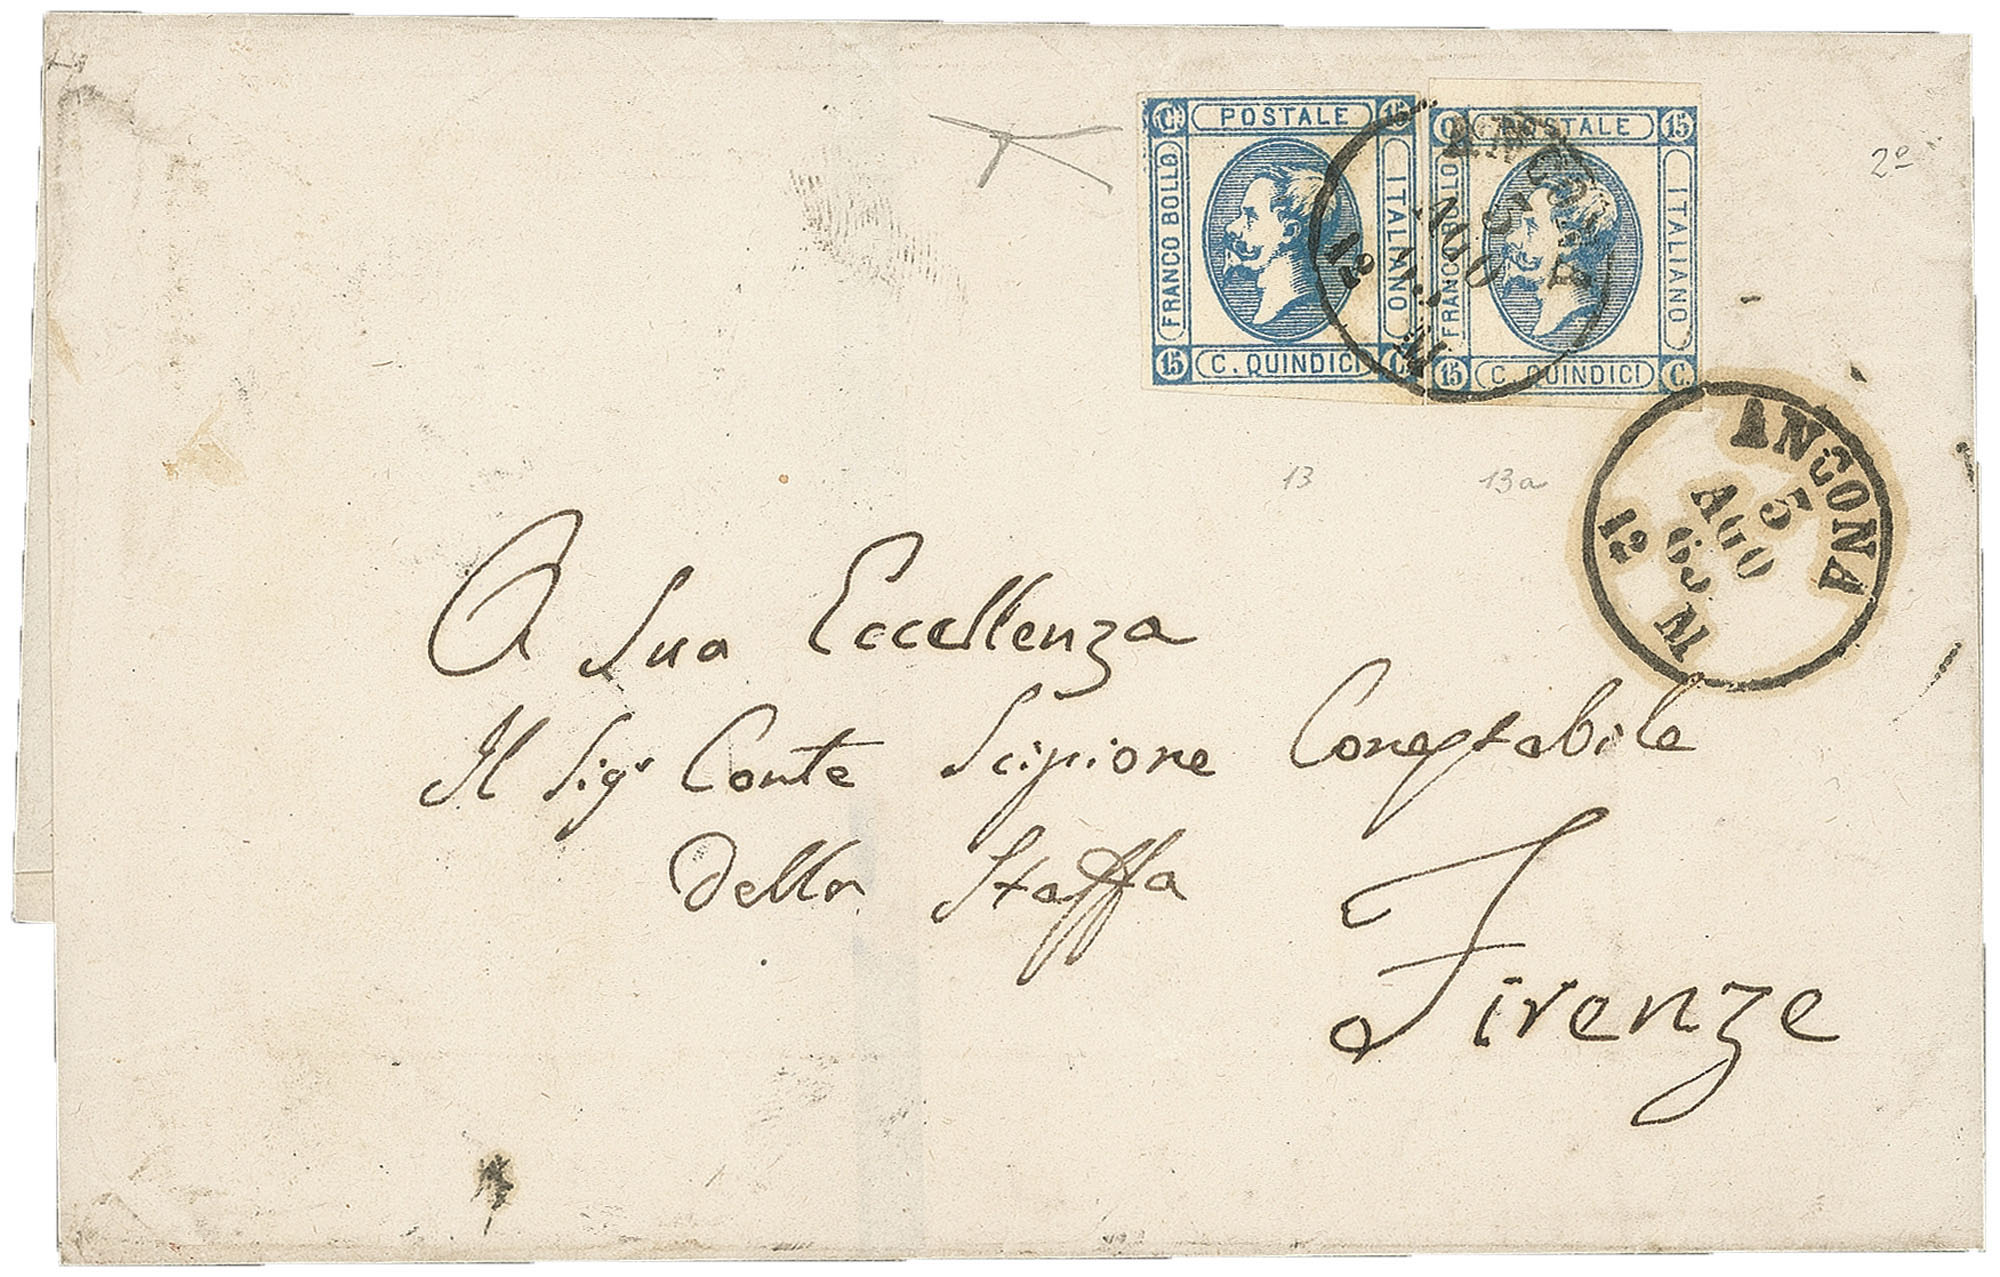 C. POSTALE 15
FRANCO BOLLO
ITALIANO
15 C. QUINDICI C.
C. POSTALE 15
FRANCO BOLLO
ITALIANO
15 C. QUINDICI C.
ANCONA
5
AGO
63
12 M
2º
13
13a
ANCONA
5
AGO
63
12 M
A Sua Eccellenza
Il Sigr Conte Scipione Conestabile
Della Staffa
Firenze